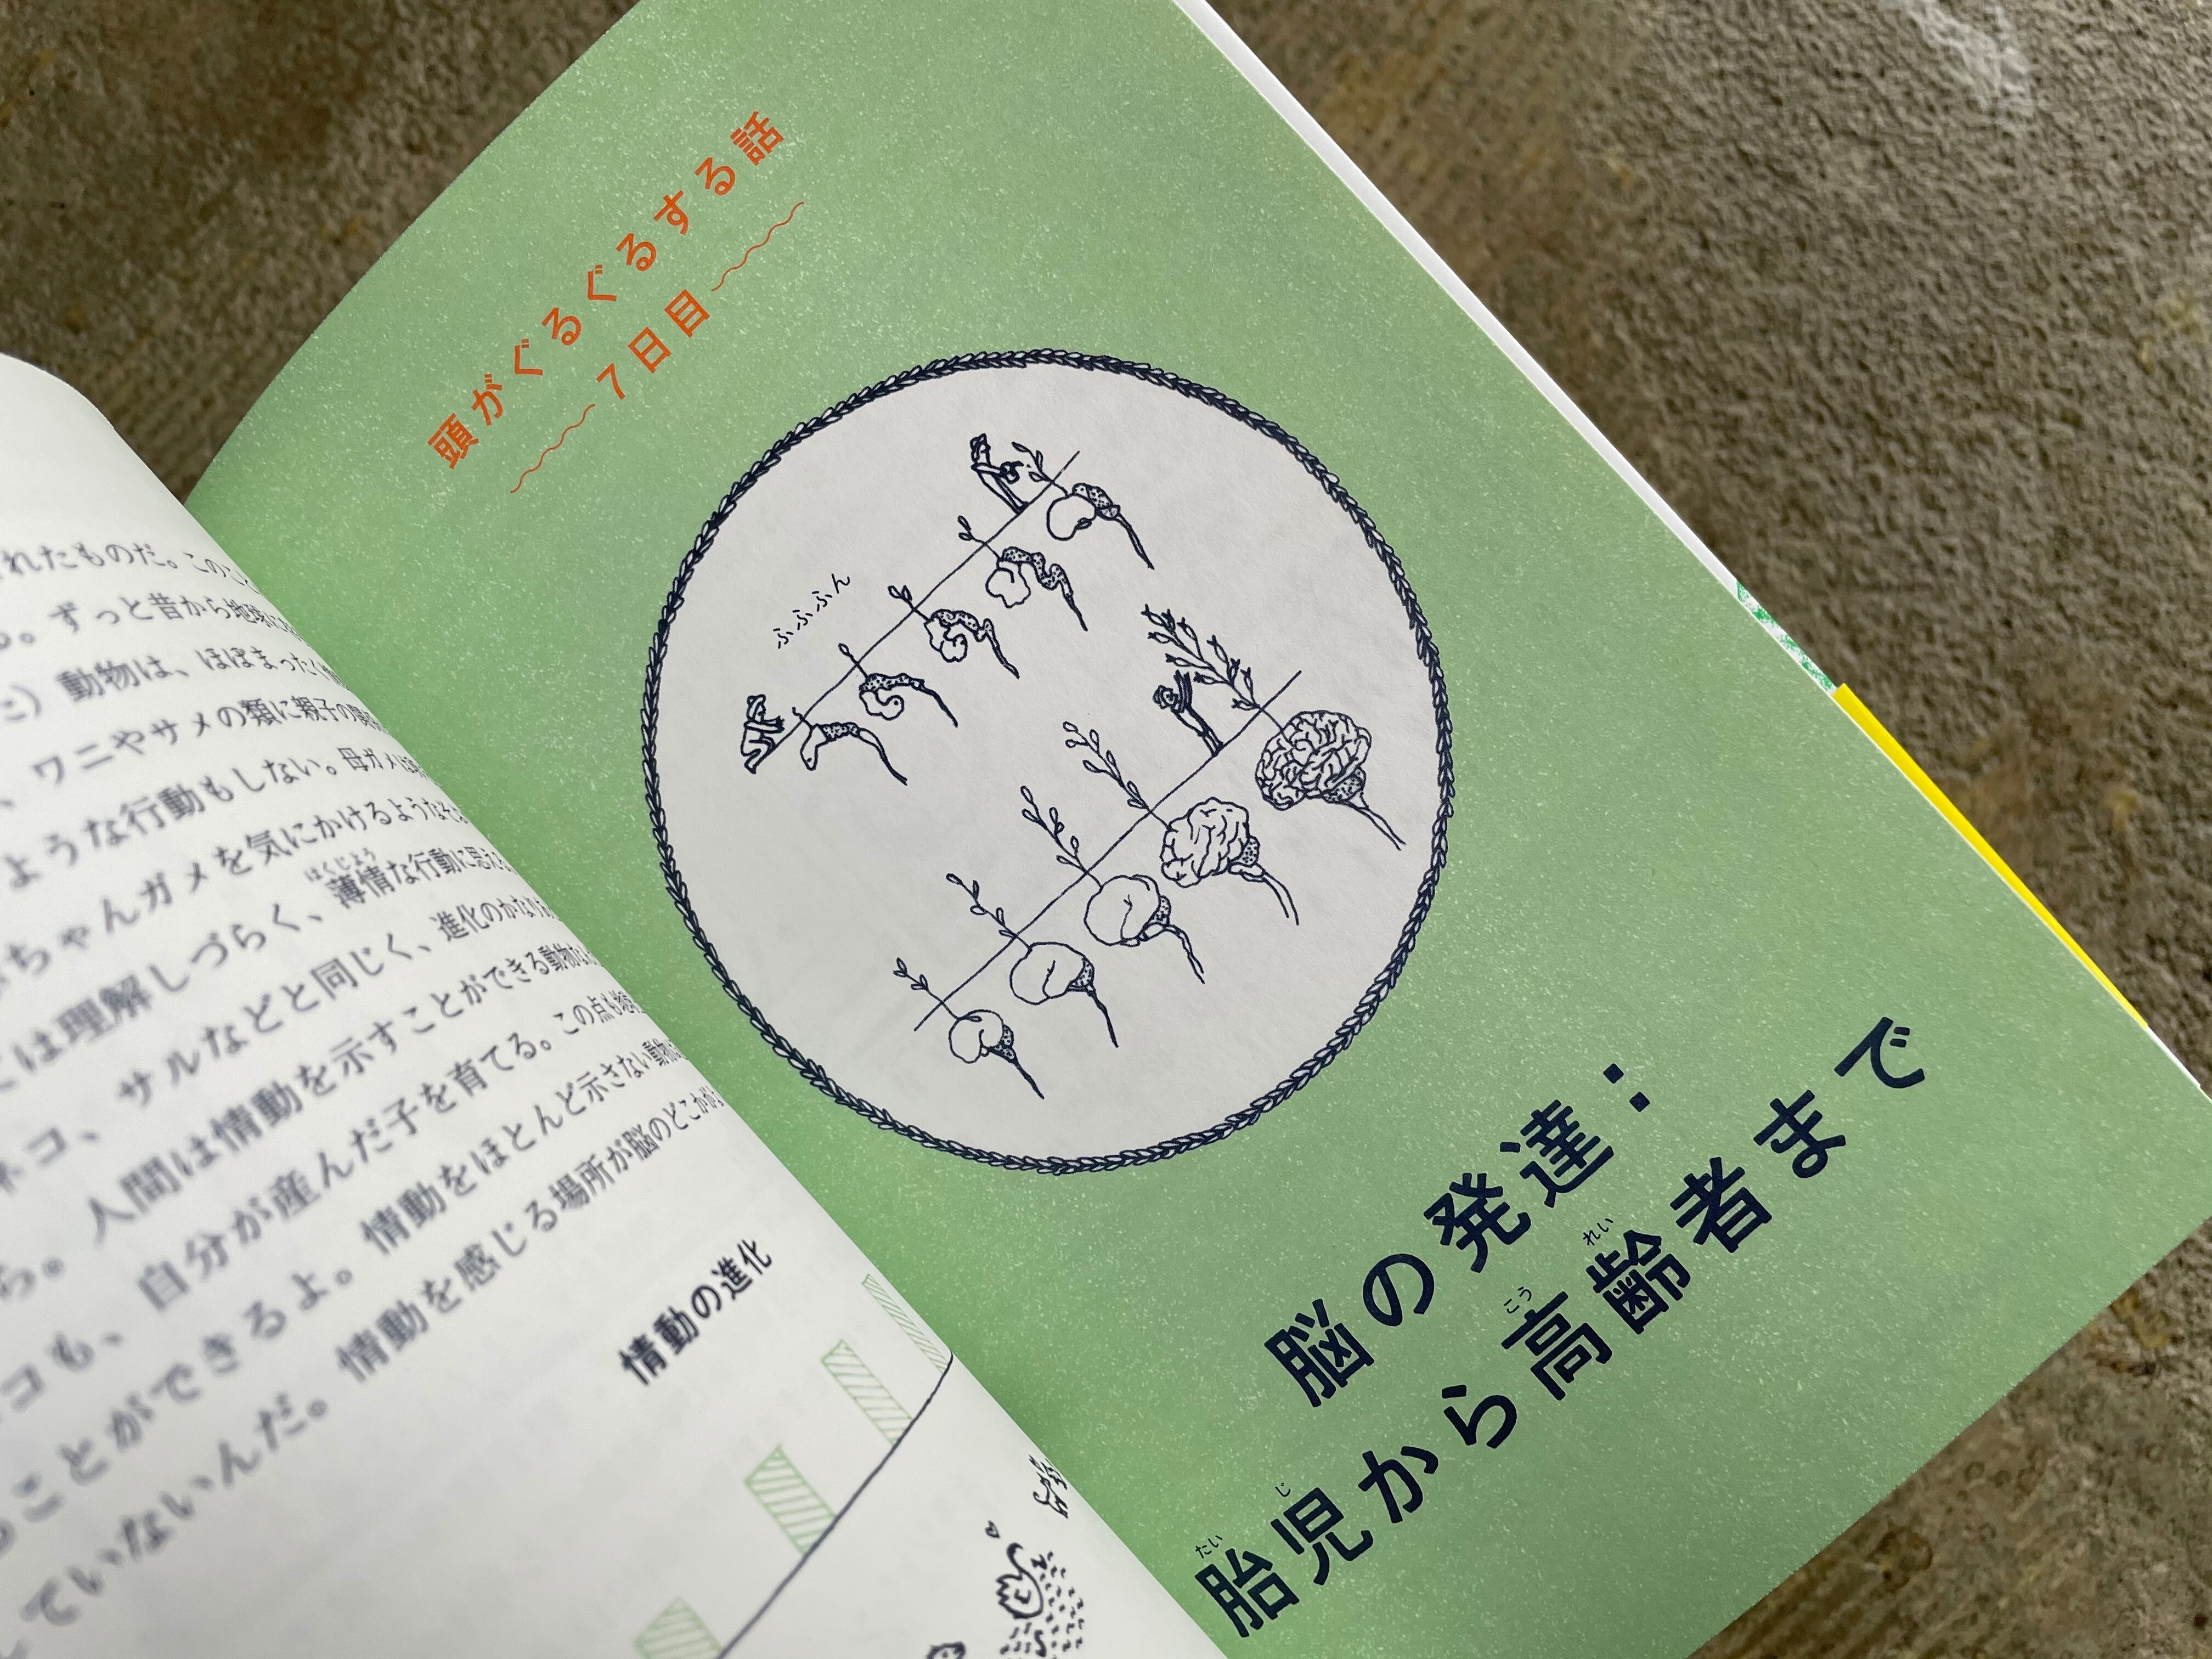 れたものだ。このこと
。ずっと昔から地球に
た）動物は、ほぼまったく
、ワニやサメの類に親子の関
ような行動もしない。母ガメは
ちゃんガメを気にかけるようなそ
は理解しづらく、薄情な行動に思え
はくじょう
ネコ、サルなどと同じく、進化のかなり
ら。人間は情動を示すことができる動物な
コも、自分が産んだ子を育てる。この点も地
ことができるよ。情動をほとんど示さない動物は
ていないんだ。情動を感じる場所が脳のどこかが
情動の進化
頭がぐるぐるする話
7日目
ふふふん
脳の発達：
胎児から高齢者まで
たい じ こう れい